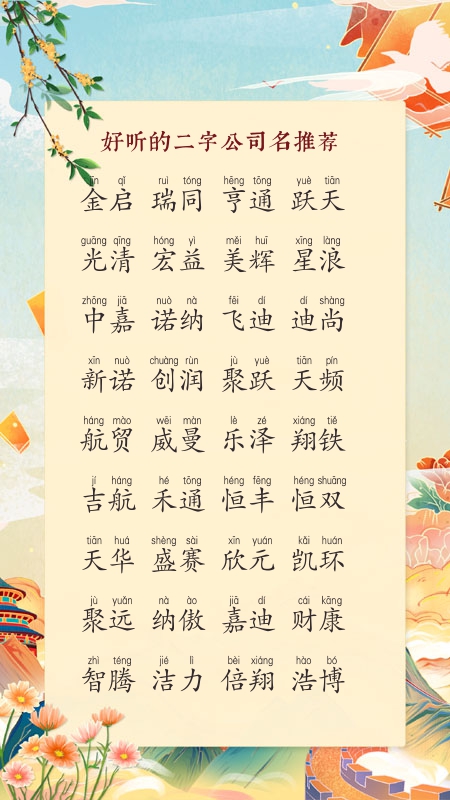 好听的二字公司名推荐
jīn qǐ ruì tóng hēng tōng yuè tiān
金启 瑞同 亨通 跃天
guāng qīng hóng yì měi huī xīng làng
光清 宏益 美辉 星浪
zhōng jiā nuò nà fēi dí dí shàng
中嘉 诺纳 飞迪 迪尚
xīn nuò chuàng rùn jù yuè tiān pín
新诺 创润 聚跃 天频
háng mào wēi màn lè zé xiáng tiě
航贸 威曼 乐泽 翔铁
jí háng hé tōng héng fēng héng shuāng
吉航 禾通 恒丰 恒双
tiān huá shèng sài xīn yuán kǎi huán
天华 盛赛 欣元 凯环
jù yuǎn nà ào jiā dí cái kāng
聚远 纳傲 嘉迪 财康
zhì téng jié lì bèi xiáng hào bó
智腾 洁力 倍翔 浩博